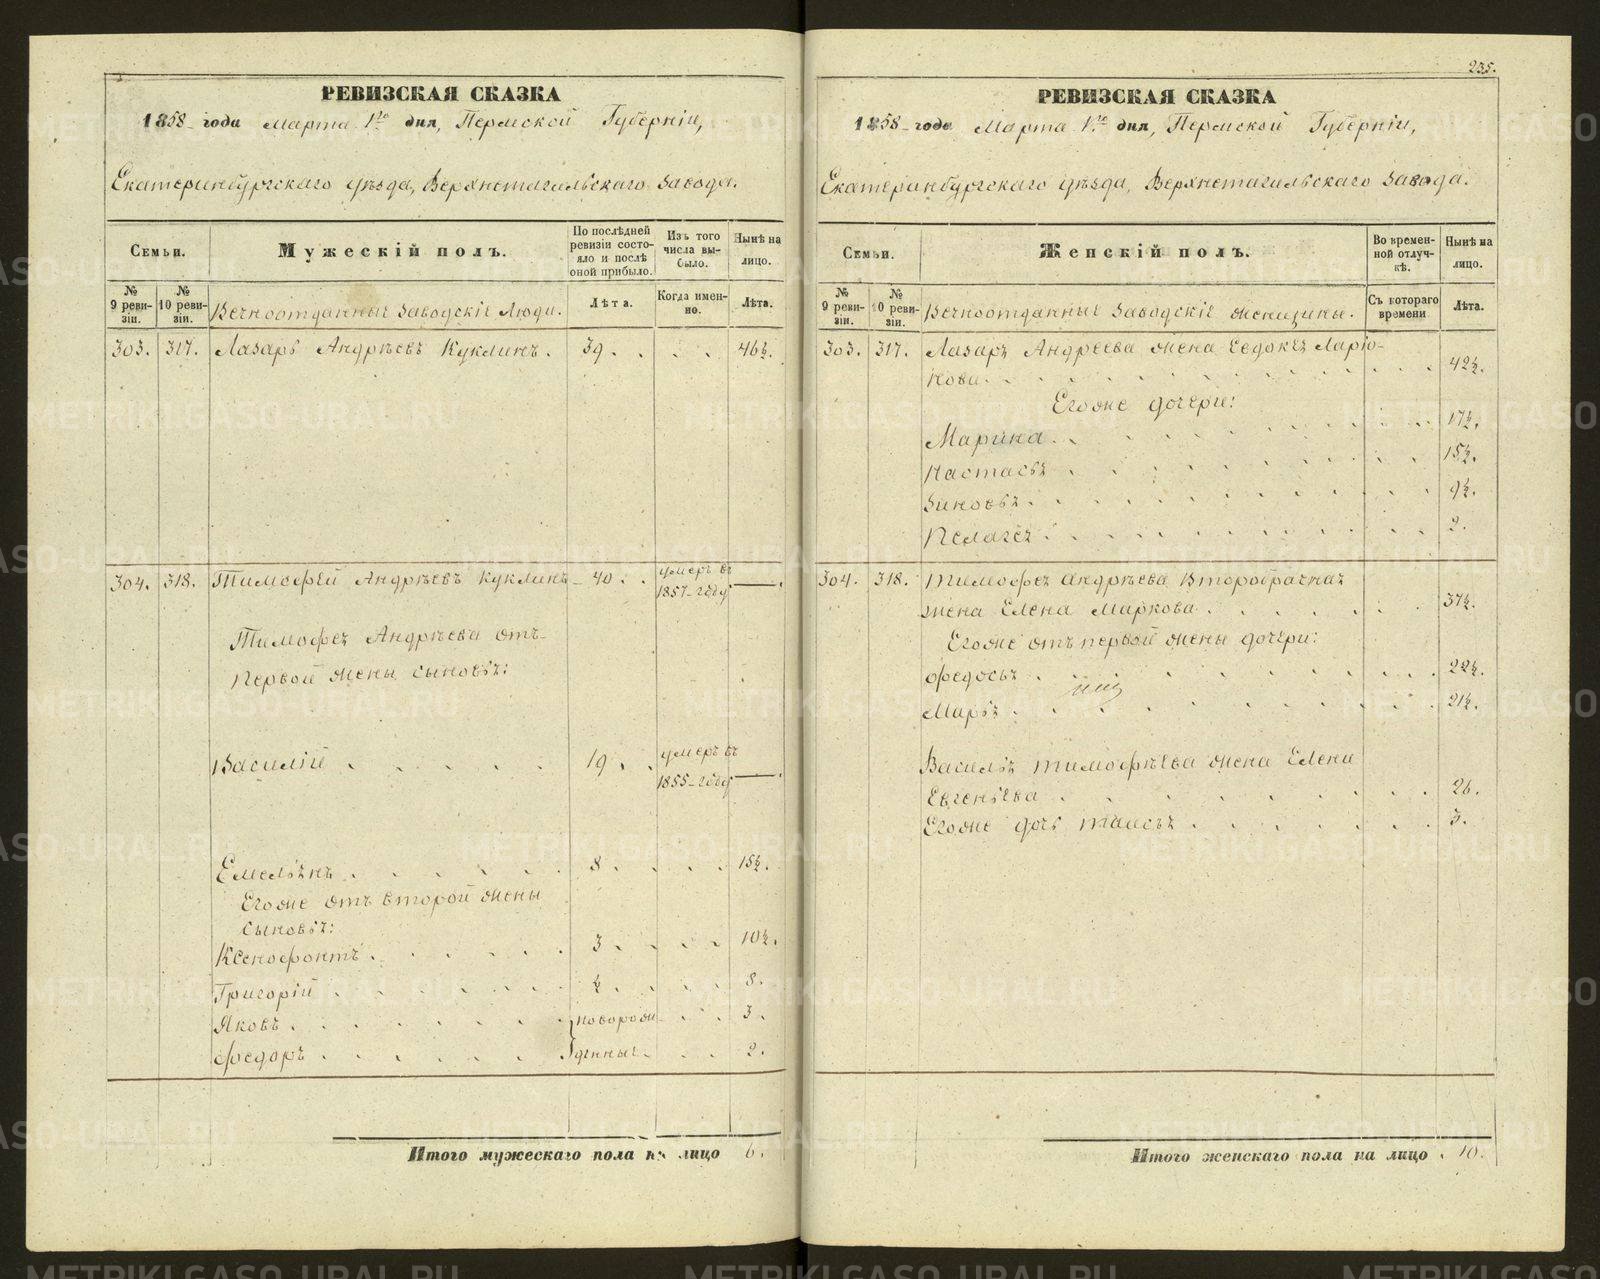 РЕВИЗСКАЯ СКАЗКА
1858 года Марта 1го дня, Пермской Губерніи,
Екатеринбургскаго уѣзда, Верхнетагильскаго Завода.
Семьи.
Мужескій полъ.
По послѣдней ревизіи состояло и послѣ оной прибыло.
Изъ того числа выбыло.
Нынѣ на лицо.
№ 9 ревизіи.
№ 10 ревизіи.
Вечноотданные Заводскіе Люди.
Лѣта.
Когда именно.
Лѣта.
303. 317. Лазарь Андрѣевъ Куклинъ. 39. 46½.
304. 318. Тимофей Андрѣевъ Куклинъ 40. умеръ въ
1857 году
Тимофея Андрѣева отъ
Первой жены сыновья:
Василій 19. умеръ въ
1855 году
Емельянъ 8 15½.
Егоже отъ второй жены
сыновья:
Ксенофонтъ. 3. 10½.
Григорій ½. 8.
Яковъ. новорож 3.
Федоръ денные. 2.
Итого мужескаго пола на лицо 6.
235.
РЕВИЗСКАЯ СКАЗКА
1858 года Марта 1го дня, Пермской Губерніи,
Екатеринбургскаго уѣзда, Верхнетагильскаго Завода.
Семьи.
Женскій полъ.
Во временной отлучкѣ.
Нынѣ на лицо.
№ 9 ревизіи.
№ 10 ревизіи.
Вечноотданные Заводскіе женщины.
Съ котораго времени
Лѣта.
303. 317. Лазаря Андреева жена Евдокея Ларіо-
нова. 42½.
Егоже дочери:
Марина. 17½.
Настасья 15½.
Зиновья. 9½.
Пелагея 2.
304. 318. Тимофея Андрѣева Второбрачная
жена Елена Маркова. 37½.
Егоже отъ первой жены дочери:
Федосья 22½.
Марья 21½.
Василья Тимофѣева жена Елена
Евгеньева 26.
Егоже дочь Таисья 3.
Итого женскаго пола на лицо 10.
METRIKI.GASO-URAL.RU